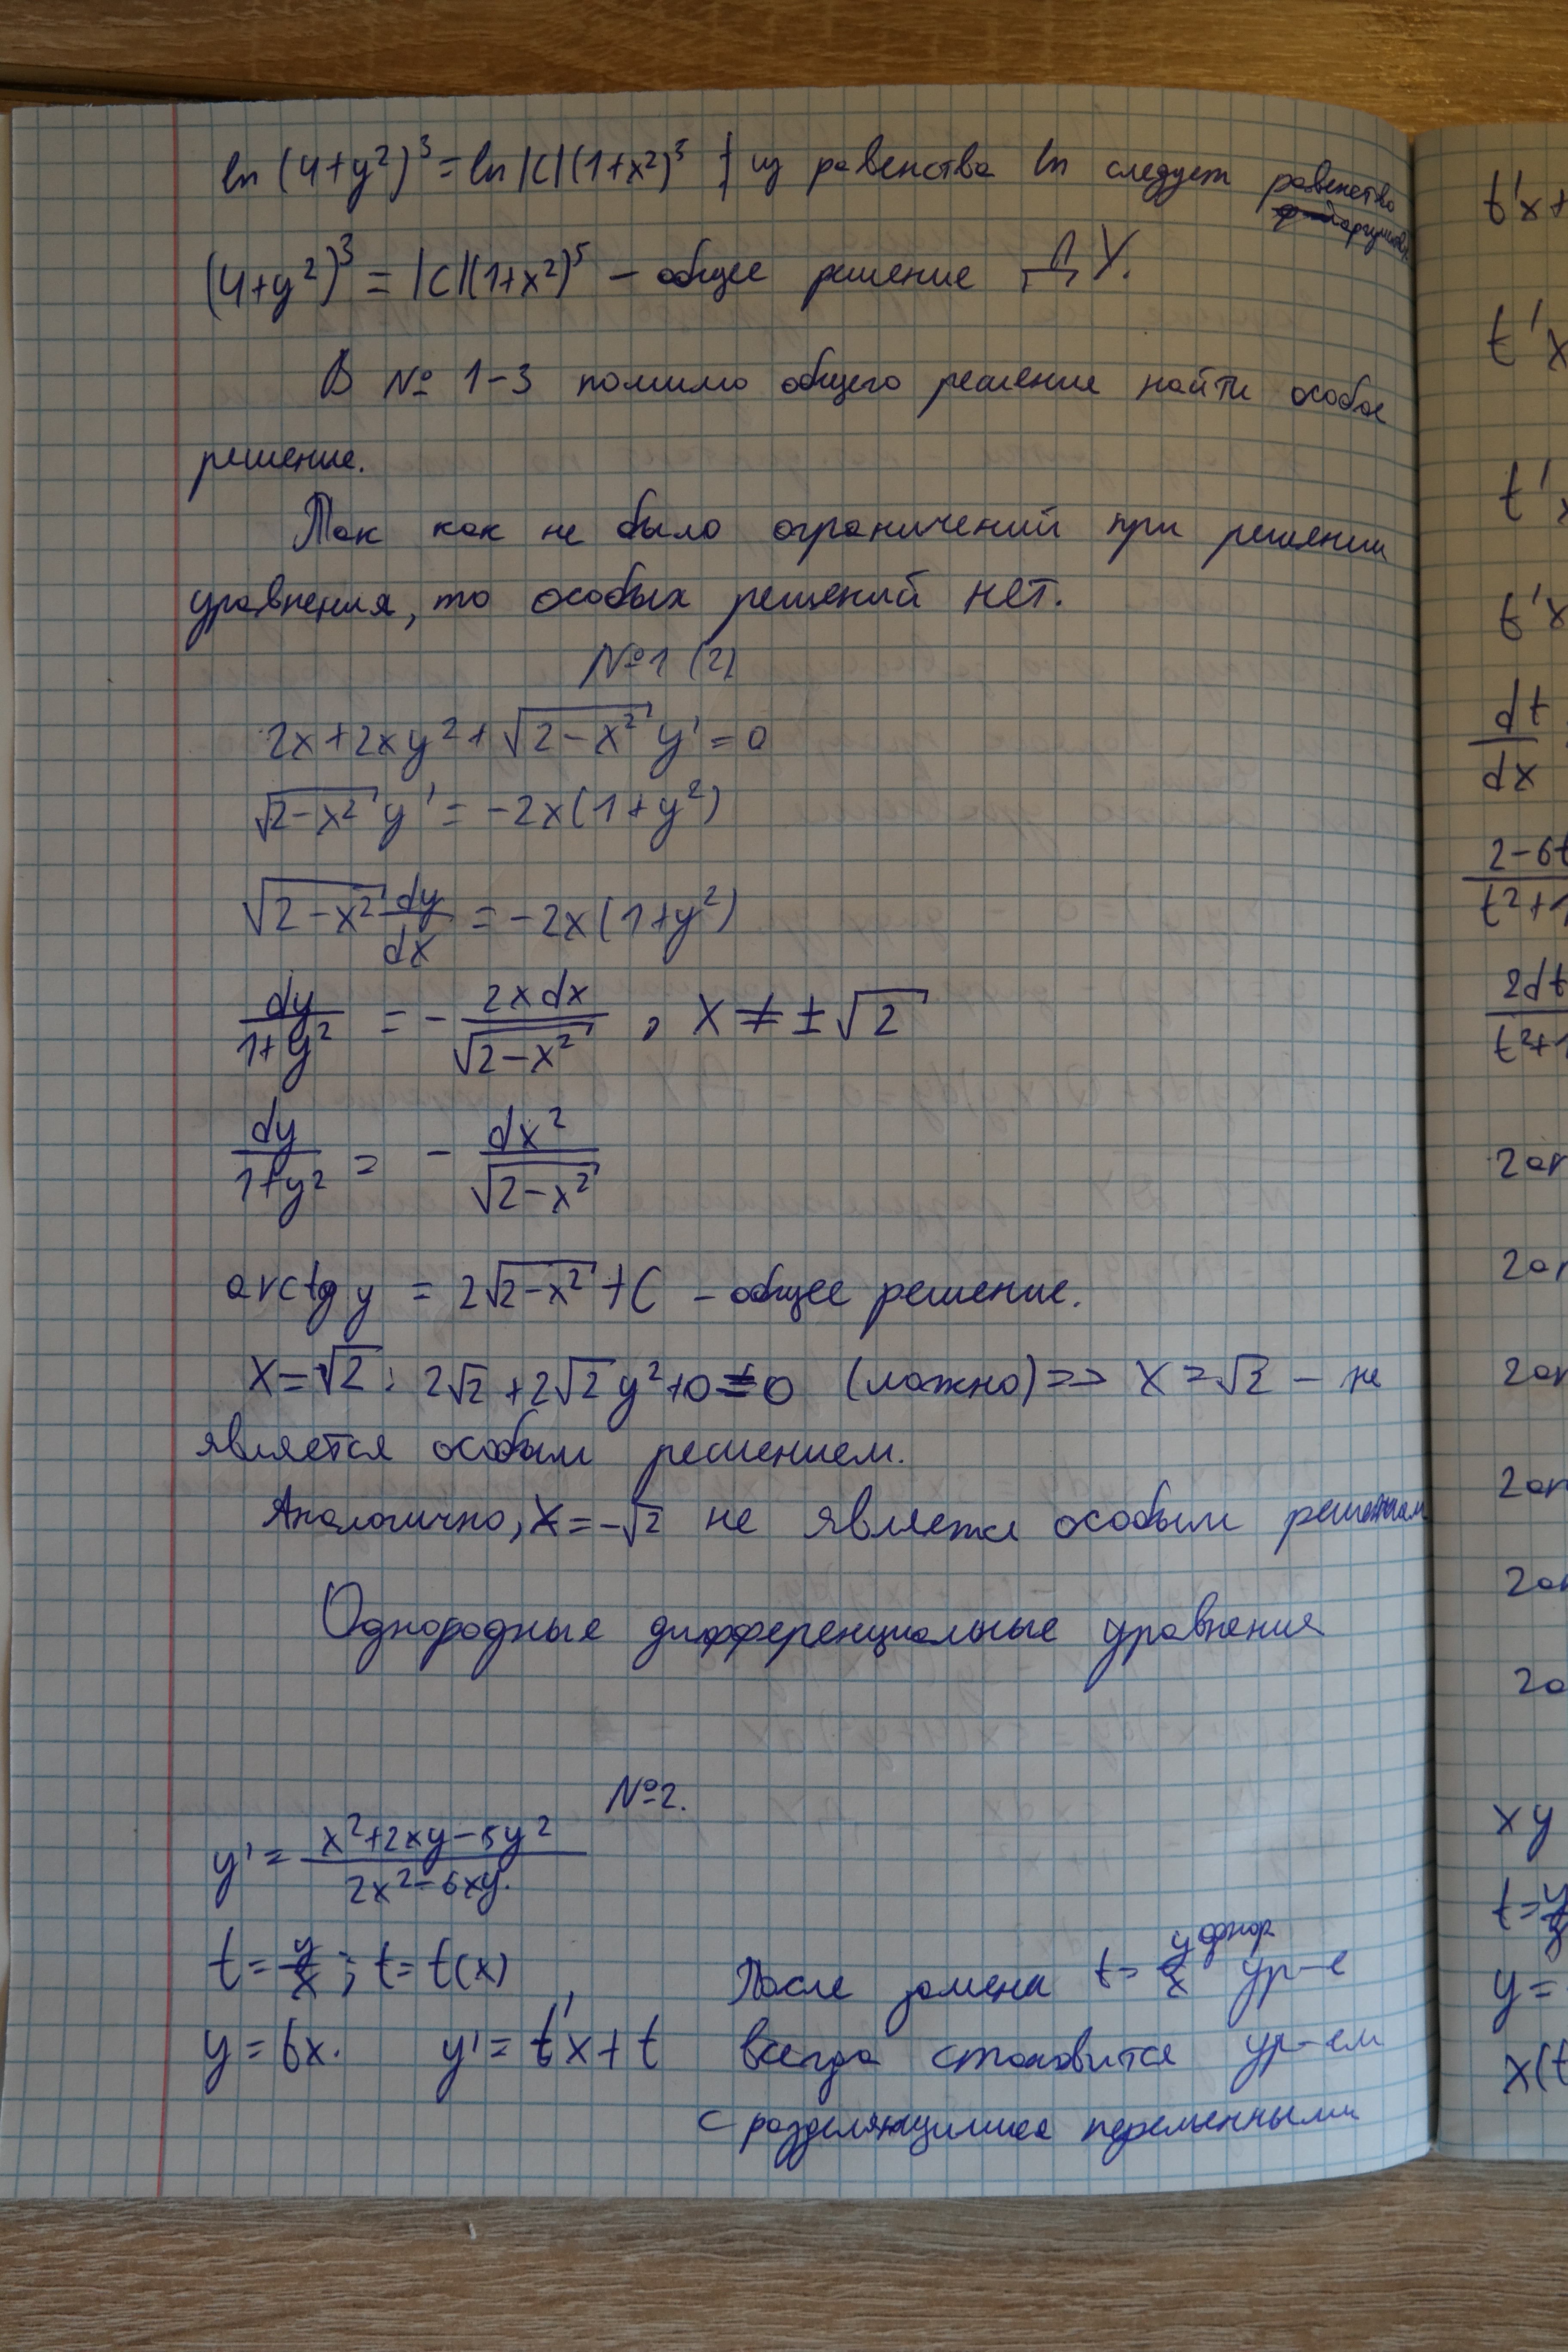 ln(4+y²)³=ln|C|(1+x²)⁵ из равенства ln следует равенство
(4+y²)³=|C|(1+x²)⁵ – общее решение ДУ.
В № 1-3 помимо общего решение найти особое
решение.
Так как не было ограничений при решении
уравнения, то особых решений нет.
№1 (2)
2x+2xy²+√(2-x²) y'=0
√(2-x²) y' = -2x(1+y²)
√(2-x²) dy/dx = -2x(1+y²)
dy/(1+y²) = - 2xdx/√(2-x²), x≠±√2
dy/(1+y²) = - dx²/√(2-x²)
arctg y = 2√(2-x²)+C – общее решение.
x=√2: 2√2+2√2y²+0≠0 (ложно)=> x=√2 – не
является особым решением.
Аналогично, x=-√2 не является особым решением
Однородные дифференциальные уравнения
№2.
y'= (x²+2xy-5y²)/(2x²-6xy).
t=y/x; t=t(x)
y=tx. y'=t'x+t
После замена t=y/x однор ур-е
всегда становится ур-ем
с разделяющимися переменными
t'x+
t'x
t'x
t'x
dt
dx
2-6t
t²+1
2dt
t²+1
2ar
2ar
2ar
2ar
2ar
2a
xy
t=y
y=
x(t